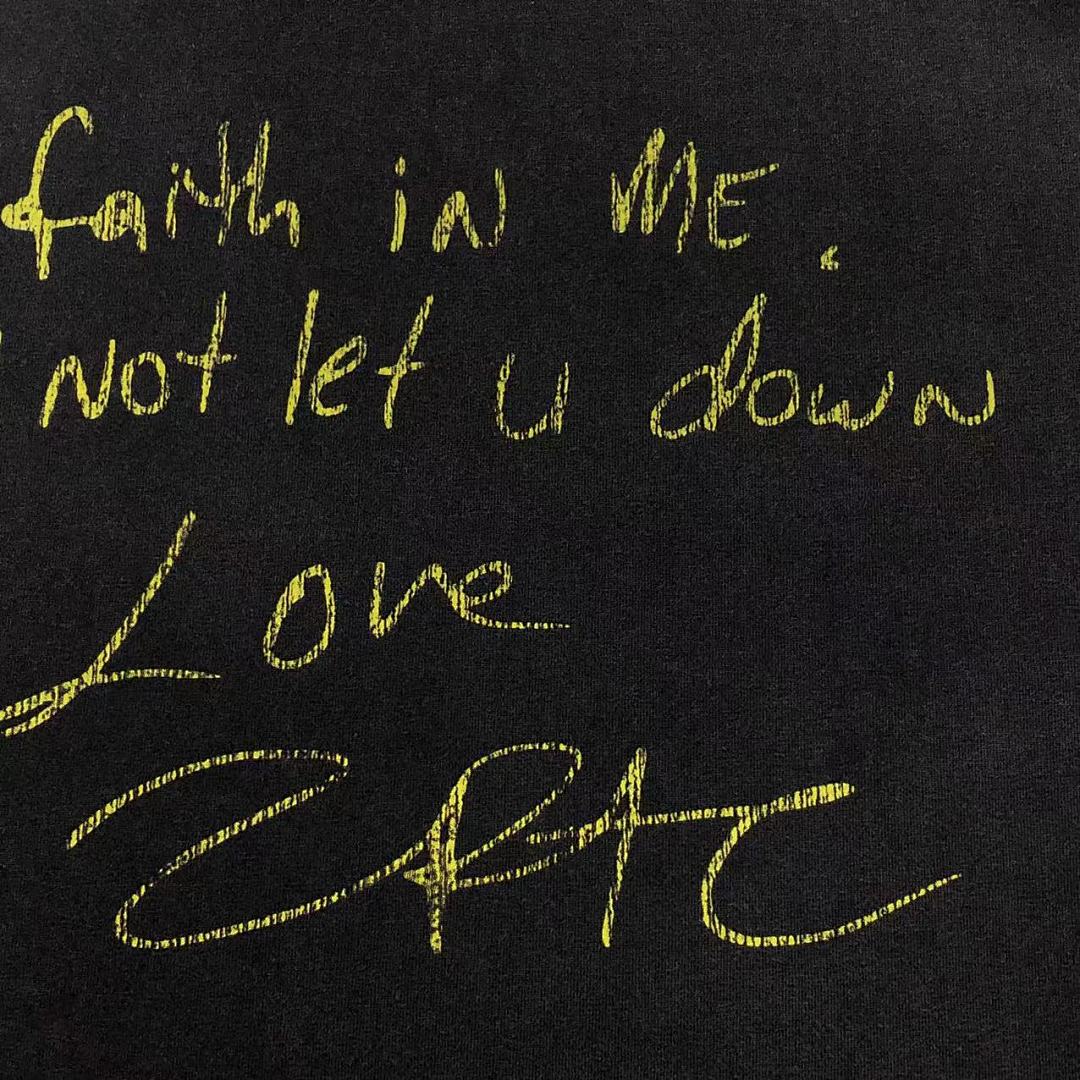 faith in ME.
not let u down
Love
2PAC